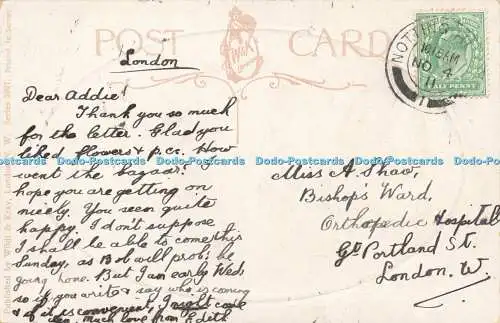 POST CARD
London
Dear Addie!
Thank you so much
for the letter. Glad you
liked flowers & p.cs. How
went the bazaar? I
hope you are getting on
nicely. You seem quite
happy. I don't suppose
I shall be able to come this
Sunday, as Bob will prob: be
going home. But I am early Wed:
so if you write & say who is coming
& if it is convenient, I might come
then. Much love from Edith
NOTTING
10.15 AM
NO 4
11
HALFPENNY
Miss A. Shaw,
Bishop's Ward,
Orthopedic Hospital
Gt. Portland St.
London. W.
Published by Wildt & Kray, London, E. W. Series
Dodo-Postcards Dodo-Postcards Dodo-Postcards Dodo-Postcards Dodo-Postcards Dodo-Postcards